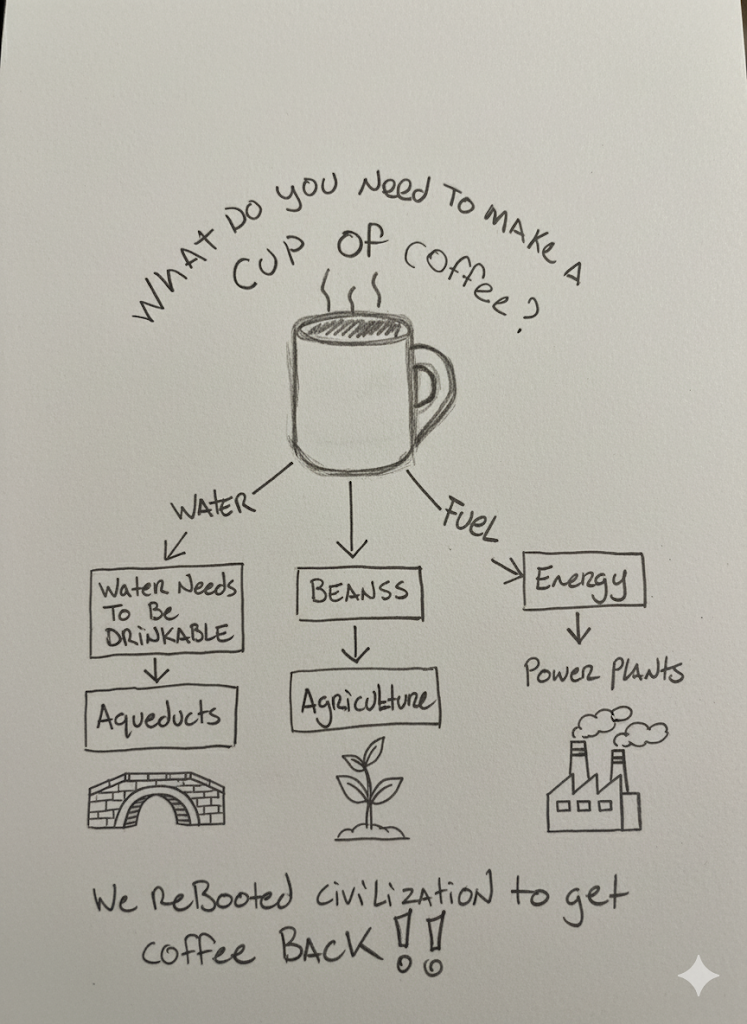 WHAT DO YOU NEED TO MAKE A
CUP OF COFFEE?
WATER
FUEL
Water Needs
To Be
DRINKABLE
BEANSS
Energy
Aqueducts
Agriculture
Power PLANTS
We ReBooted civiLizATION to get
coffee BACK!!